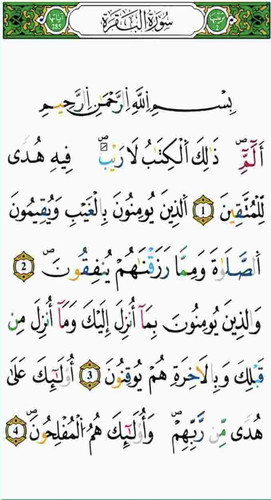 ترتيبها 2 سُورَةُ الْبَقَرَةِ آياتها 285
بِسْمِ اللَّهِ الرَّحْمَٰنِ الرَّحِيمِ
أَلَٓمِّٓۖ ذَٰلِكَ اَلْكِتَٰبُ لَا رَيْبَۖ فِيهِ هُدىً
لِّلْمُتَّقِينَ 1 اَلذِينَ يُومِنُونَ بِالْغَيْبِ وَيُقِيمُونَ
اَلصَّلَوٰةَ وَمِمَّا رَزَقْنَٰهُمْ يُنفِقُونَۖ 2
وَالذِينَ يُومِنُونَ بِمَآ أُنزِلَ إِلَيْكَ وَمَآ أُنزِلَ مِن
قَبْلِكَ وَبِالَاخِرَةِ هُمْ يُوقِنُونَۖ 3 أُوْلَٰٓئِكَ عَلَىٰ
هُدىً مِّن رَّبِّهِمْۖ وَأُوْلَٰٓئِكَ هُمُ اُلْمُفْلِحُونَۖ 4